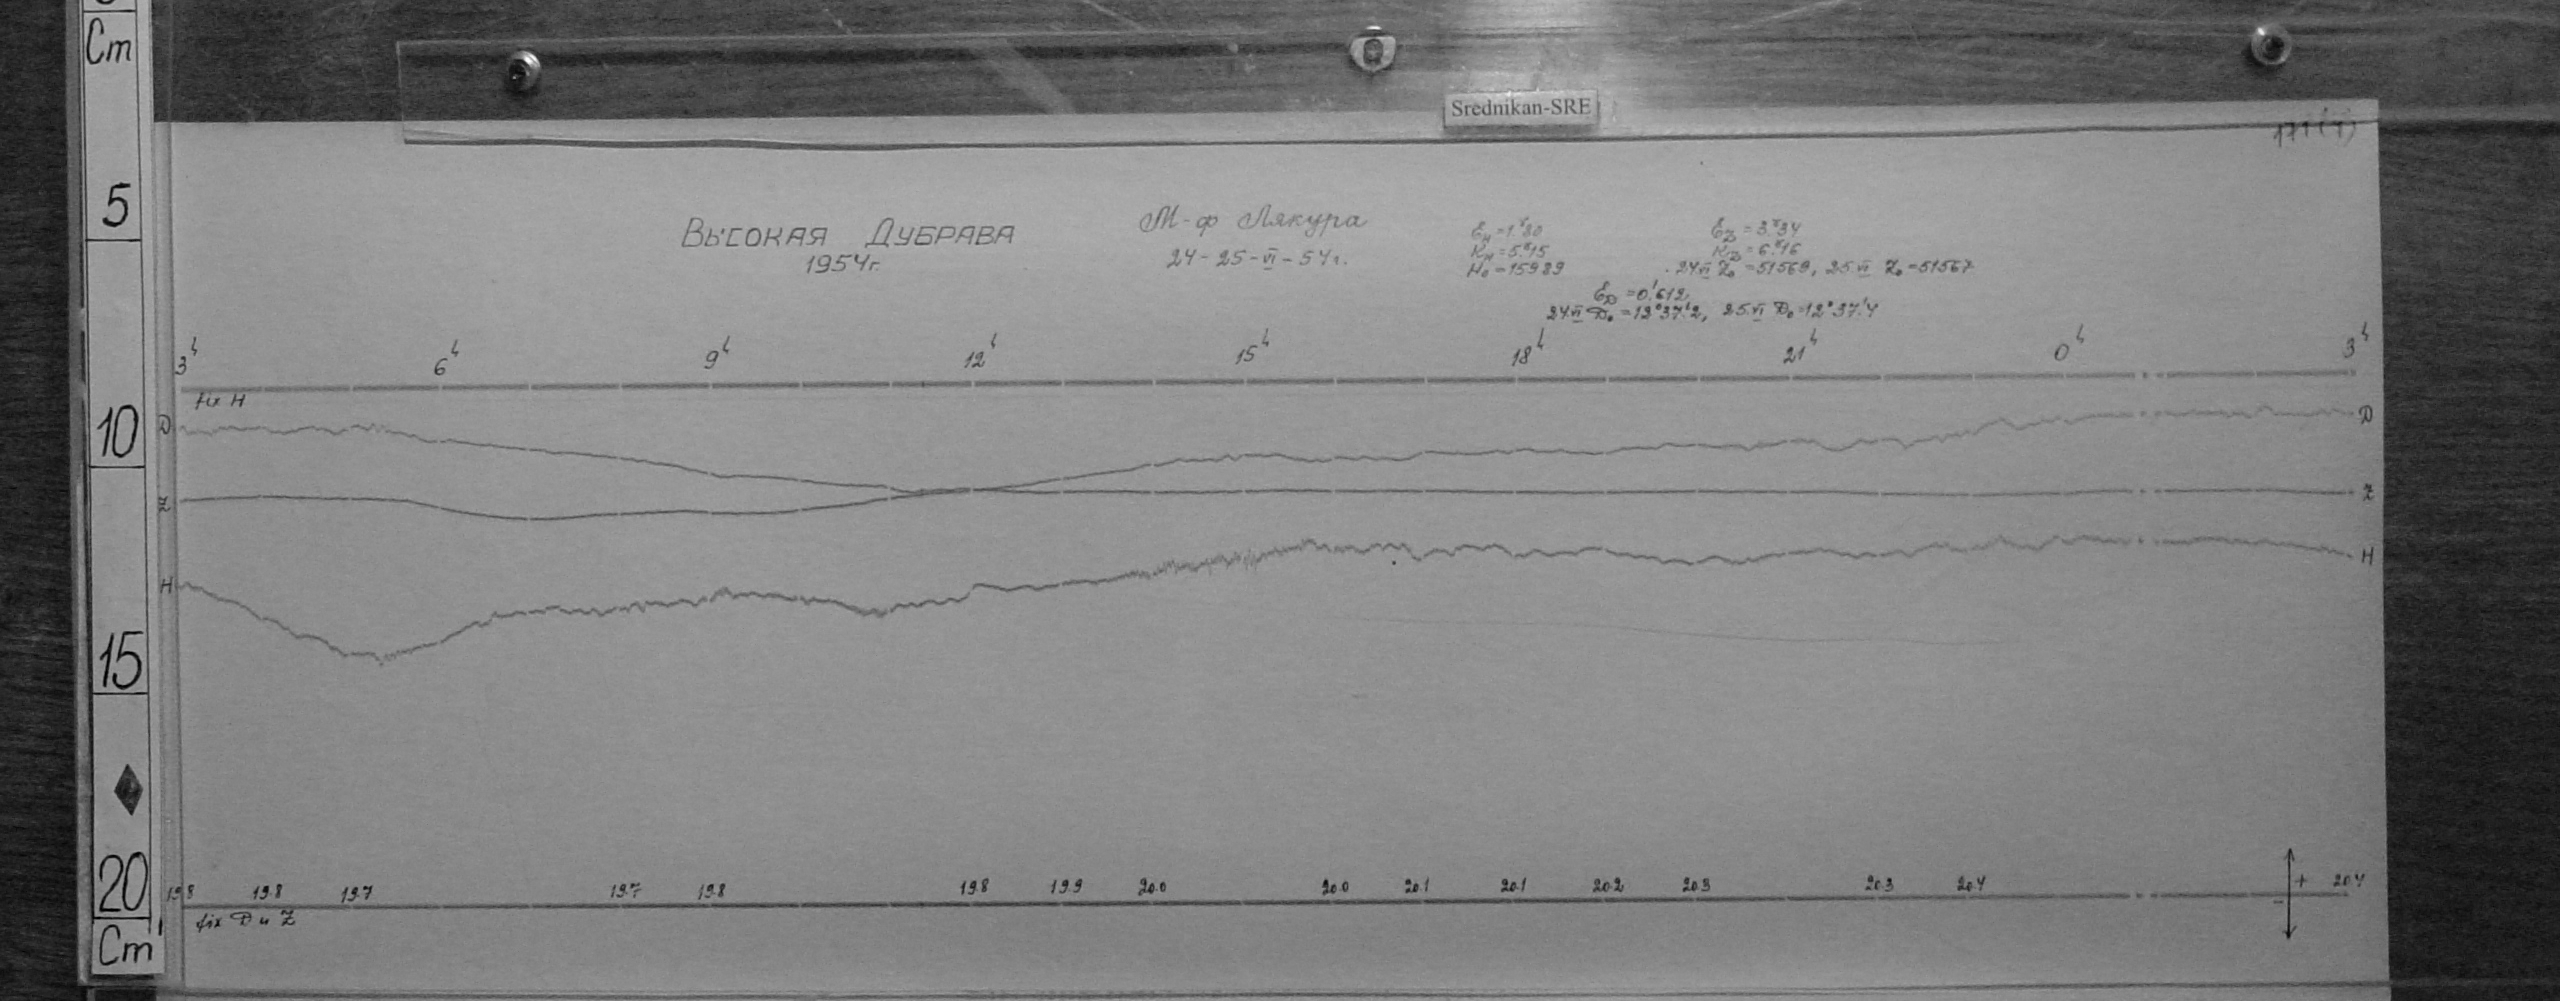 Cm
5
10
15
20
Cm
Srednikan-SRE
171(1)
Высокая Дубрава
1954г.
М-ф Лякура
24-25-VI-54г.
E_H=1.ˠ80
K_H=5.ˠ15
H₀=15989
E_Z=3.ˠ34
24.VI Z₀=51569, 25.VI Z₀=51567
E_D=0.'612
24.VI D₀=12°37.'2, 25.VI D₀=12°37.'4
3ʰ 6ʰ 9ʰ 12ʰ 15ʰ 18ʰ 21ʰ 0ʰ 3ʰ
fix H
D D
Z Z
H H
19.8 19.8 19.7 19.7 19.8 19.8 19.9 20.0 20.0 20.1 20.1 20.2 20.3 20.3 20.4 + 20.4
-
fix D и Z